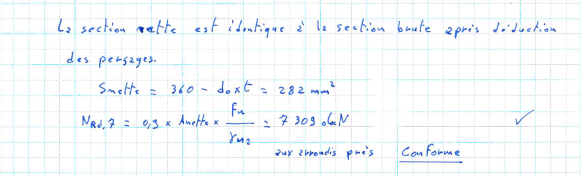 La section nette est identique à la section brute après déduction
des perçages.
Snette = 360 - d₀xt = 282 mm²
N_Rd,7 = 0,9 x Anette x Fu / γM2 = 7 309 daN ✓
aux arrondis près Conforme